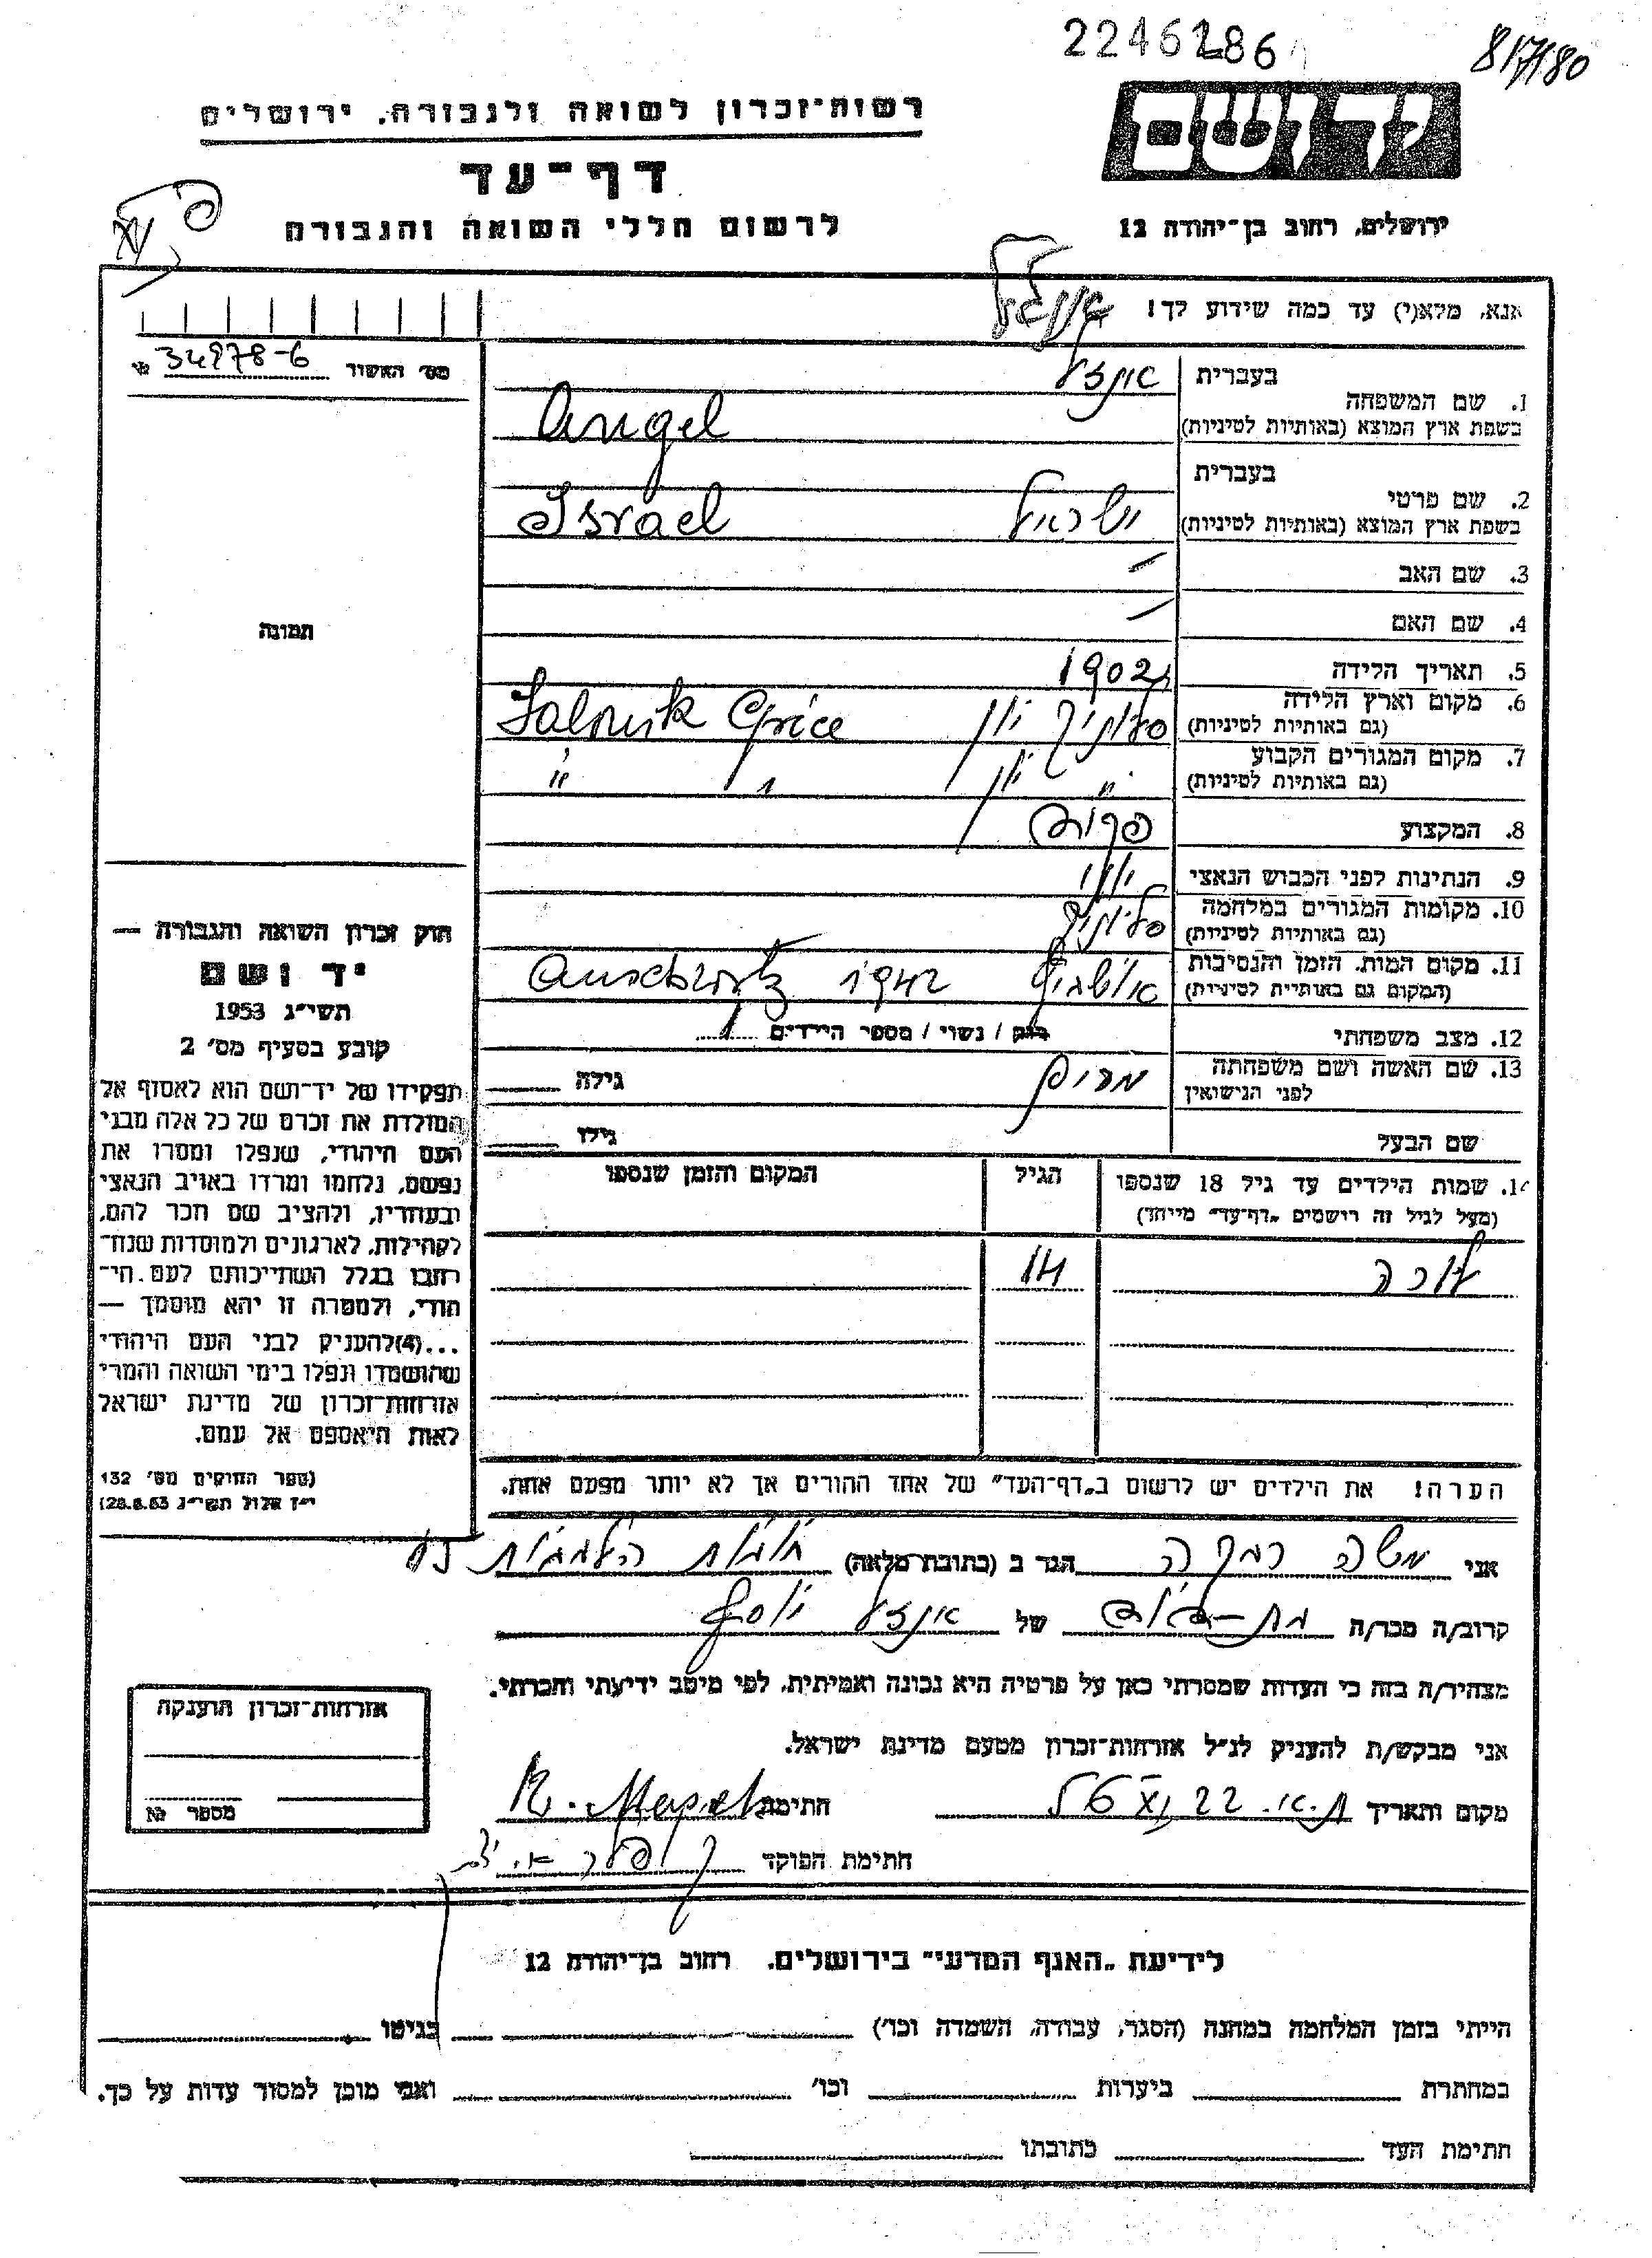 2246186
817/80
רשות־זכרון לשואה ולגבורה, ירושלים
יד ושם
דף־עד
לרשום חללי השואה והגבורה
ירושלים, רחוב בן־יהודה 12
אנא, מלא(י) עד כמה שידוע לך!
מס׳ האשור № 34978-6
1. שם המשפחה
בעברית אנזל
בשפת ארץ המוצא (באותיות לטיניות) Angel
2. שם פרטי
בעברית ישראל
בשפת ארץ המוצא (באותיות לטיניות) Israel
3. שם האב –
4. שם האם –
תמונה
5. תאריך הלידה 1902
6. מקום וארץ הלידה
(גם באותיות לטיניות) סלוניק יוון Salonik Grèce
7. מקום המגורים הקבוע
(גם באותיות לטיניות) " יוון " "
8. המקצוע
9. הנתינות לפני הכבוש הנאצי יווני
10. מקומות המגורים במלחמה
(גם באותיות לטיניות) סלוניק
11. מקום המות, הזמן והנסיבות
(המקום גם באותיות לטיניות) אושויץ 1942
12. מצב משפחתי רוק / נשוי / מספר הילדים 1
13. שם האשה ושם משפחתה
לפני הנישואין מרים גילה
שם הבעל גילו
14. שמות הילדים עד גיל 18 שנספו
(מעל לגיל זה רישמים „דף־עד״ מייחד)
הגיל
המקום והזמן שנספו
14
חוק זכרון השואה והגבורה —
יד ושם
תשי״ג 1953
קובע בסעיף מס׳ 2
תפקידו של יד־ושם הוא לאסוף אל
המולדת את זכרם של כל אלה מבני
העם היהודי, שנפלו ומסרו את
נפשם, נלחמו ומרדו באויב הנאצי
ובעוזריו, ולהציב שם וזכר להם,
לקהילות, לארגונים ולמוסדות שנח־
רבו בגלל השתייכותם לעם הי־
הודי, ולמטרה זו יהא מוסמך —
...(4)להעניק לבני העם היהודי
שהושמדו ונפלו בימי השואה והמרי
אזרחות־זכרון של מדינת ישראל
לאות היאספם אל עמם.
(ספר החוקים מס׳ 132
י״ז אלול תשי״ג 28.8.53)
הערה! את הילדים יש לרשום ב„דף־העד״ של אחד ההורים אך לא יותר מפעם אחת.
אני משה רבקה הגר ב (כתובת מלאה)
קרוב/ה מכר/ה בת-דוד של אנזל יוסף
מצהיר/ה בזה כי העדות שמסרתי כאן על פרטיה היא נכונה ואמיתית, לפי מיטב ידיעתי והכרתי.
אני מבקש/ת להעניק לנ״ל אזרחות־זכרון מטעם מדינת ישראל.
מקום ותאריך ת.א. 22 חתימת
חתימת הפוקד
אזרחות־זכרון הוענקה
מספר №
לידיעת „האגף המדעי״ בירושלים, רחוב בן־יהודה 12
הייתי בזמן המלחמה במחנה (הסגר, עבודה, השמדה וכו׳) בגיטו
במחתרת ביערות וכו׳ ואני מוכן למסור עדות על כך.
חתימת העד כתובתו